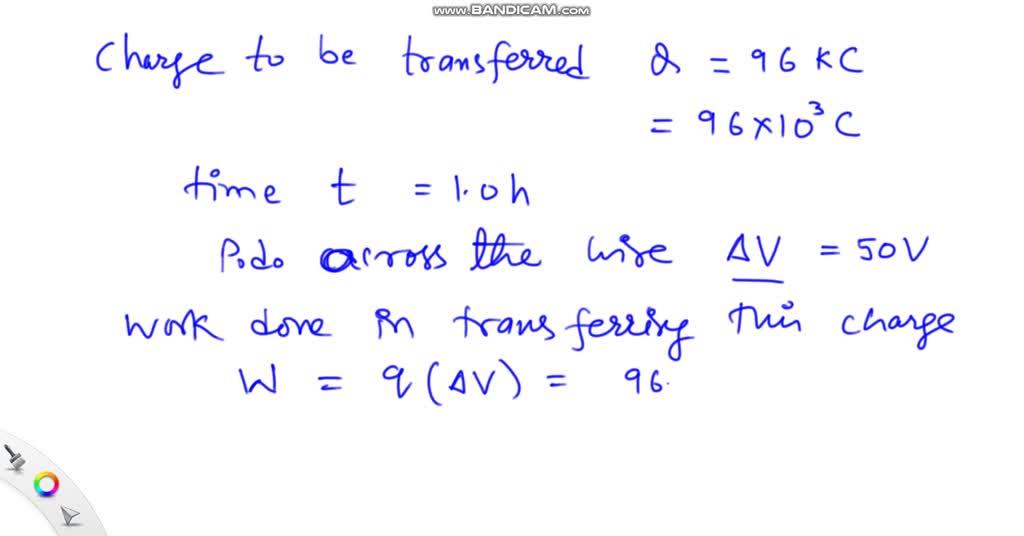 www.BANDICAM.com
Charge to be transferred Q = 96 KC
= 96×10³ C
time t = 1.0h
P.do across the wire ΔV = 50V
work done in transferring this charge
W = q (ΔV) = 96.